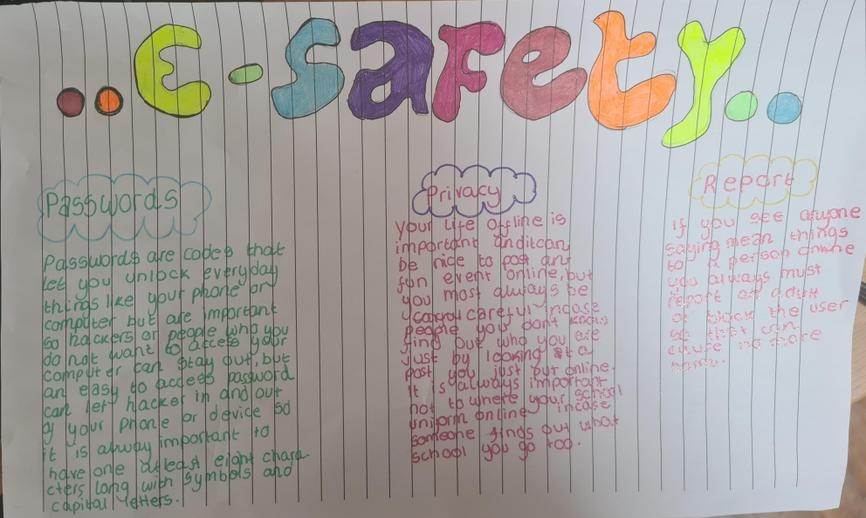 ..E-safety..
Passwords
Passwords are codes that
let you unlock everyday
things like your phone or
computer but are important
so hackers or people who you
do not want to access your
computer can stay out, but
an easy to access password
can let hacker in and out
of your phone or device so
it is alway important to
have one atleast eight chara
cters long with symbols and
capital letters.
Privacy
Your life offline is
important and it can
be nice to post any
fun event online, but
you most always be
careful incase
people you dont know
find out who you are
just by looking at a
post you just put online.
It is always important
not to where your school
uniform online incase
someone finds out what
school you go too.
Report
If you see anyone
saying mean things
to a person online
you always must
report an adult
or block the user
so that can
no more